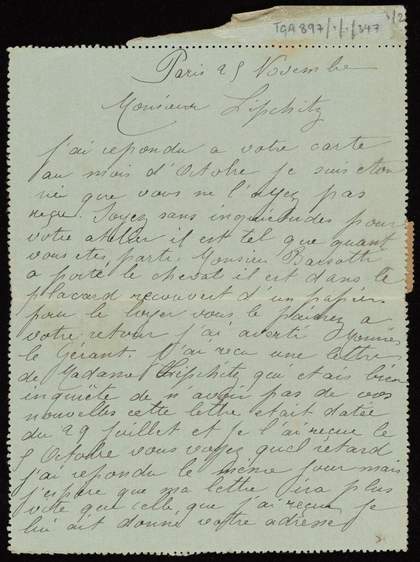 TGA 897/1/1/347
1/2
Paris 25 Novembre
Monsieur Lipchitz
J'ai repondu a votre carte
au mois d'Octobre je suis eton
née que vous ne l'ayez pas
reçue. Soyez sans inquietudes pour
votre atelier il est tel que quant
vous etes partie Monsieur
a porté le cheval il est dans le
placard recouvert d'un papier
pour le loyer vous le payerez a
votre retour j'ai averti Monsieur
le Gérant. J'ai reçu une lettre
de Madame Lipchitz qui etais bien
inquiète de n avoir pas de vos
nouvelles cette lettre etait datée
du 29 juillet et je l'ai reçue le
5 Octobre vous voyez quel retard
j'ai repondu le même jour mais
j'espere que ma lettre ira plus
vite que celle que j'ai reçue je
lui ait donné votre adresse